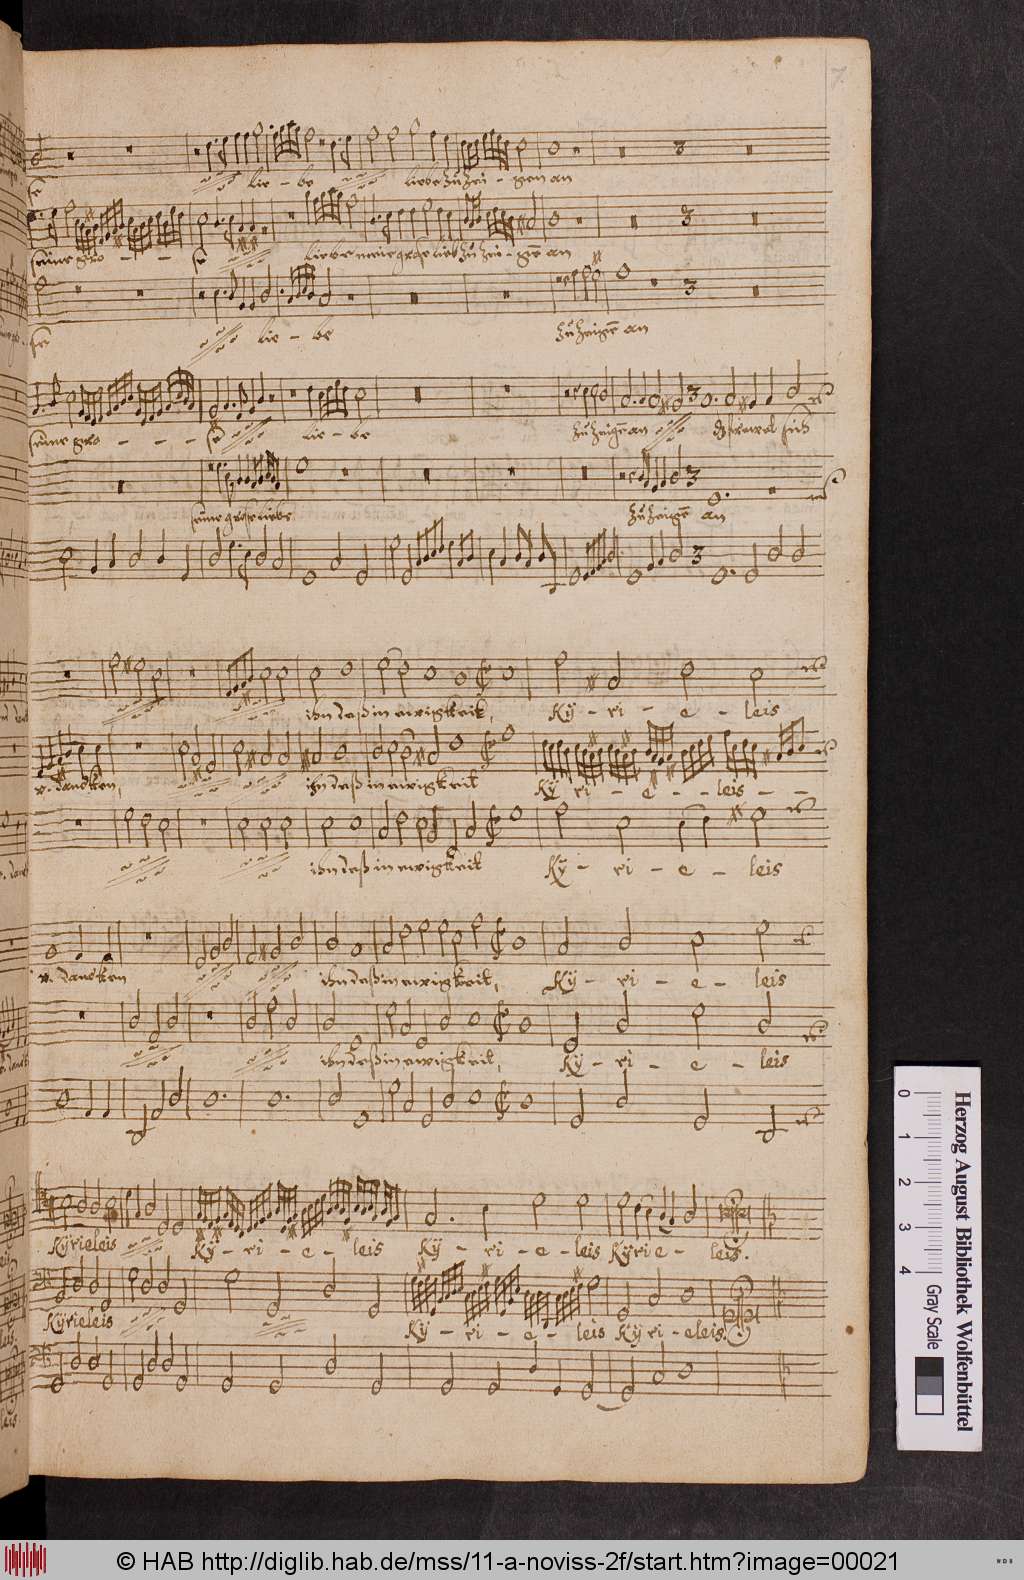 7.
lie - be liebe zu zei - gen an
seine gro - - se liebe meine grose lieb zu zei - gē an
lie - be zu zeigē an
seine gro - - - se lie - be zu zeigē an
seine grose liebe zu zeigē an
ihn daß in ewigkeit, Ky - ri - e - leis
v. dancken, ihn daß in ewigkeit Ky ri - e - - leis - -
ihn daß in ewigkeit Ky - ri - e - leis
v. dancken ihn daß in ewigkeit, Ky - ri - e - leis
ihn daß in ewigkeit, Ky - ri - e - leis
Kyrieleis Ky - ri - e - leis Ky - ri - e - leis Kyrie - leis.
Kyrieleis Ky - ri - e - leis Kyri - eleis.
Herzog August Bibliothek Wolfenbüttel
0 1 2 3 4 Gray Scale
© HAB http://diglib.hab.de/mss/11-a-noviss-2f/start.htm?image=00021